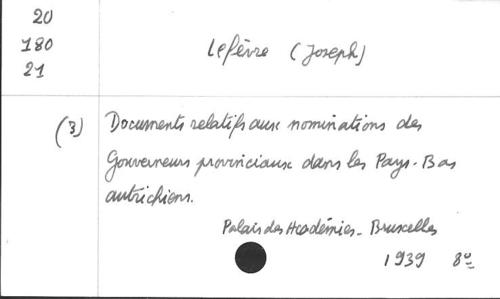 20
180
21
Lefèvre (Joseph)
(3) Documents relatifs aux nominations des
Gouverneurs provinciaux dans les Pays-Bas
autrichiens.
Palais des Académies - Bruxelles
1939 8º